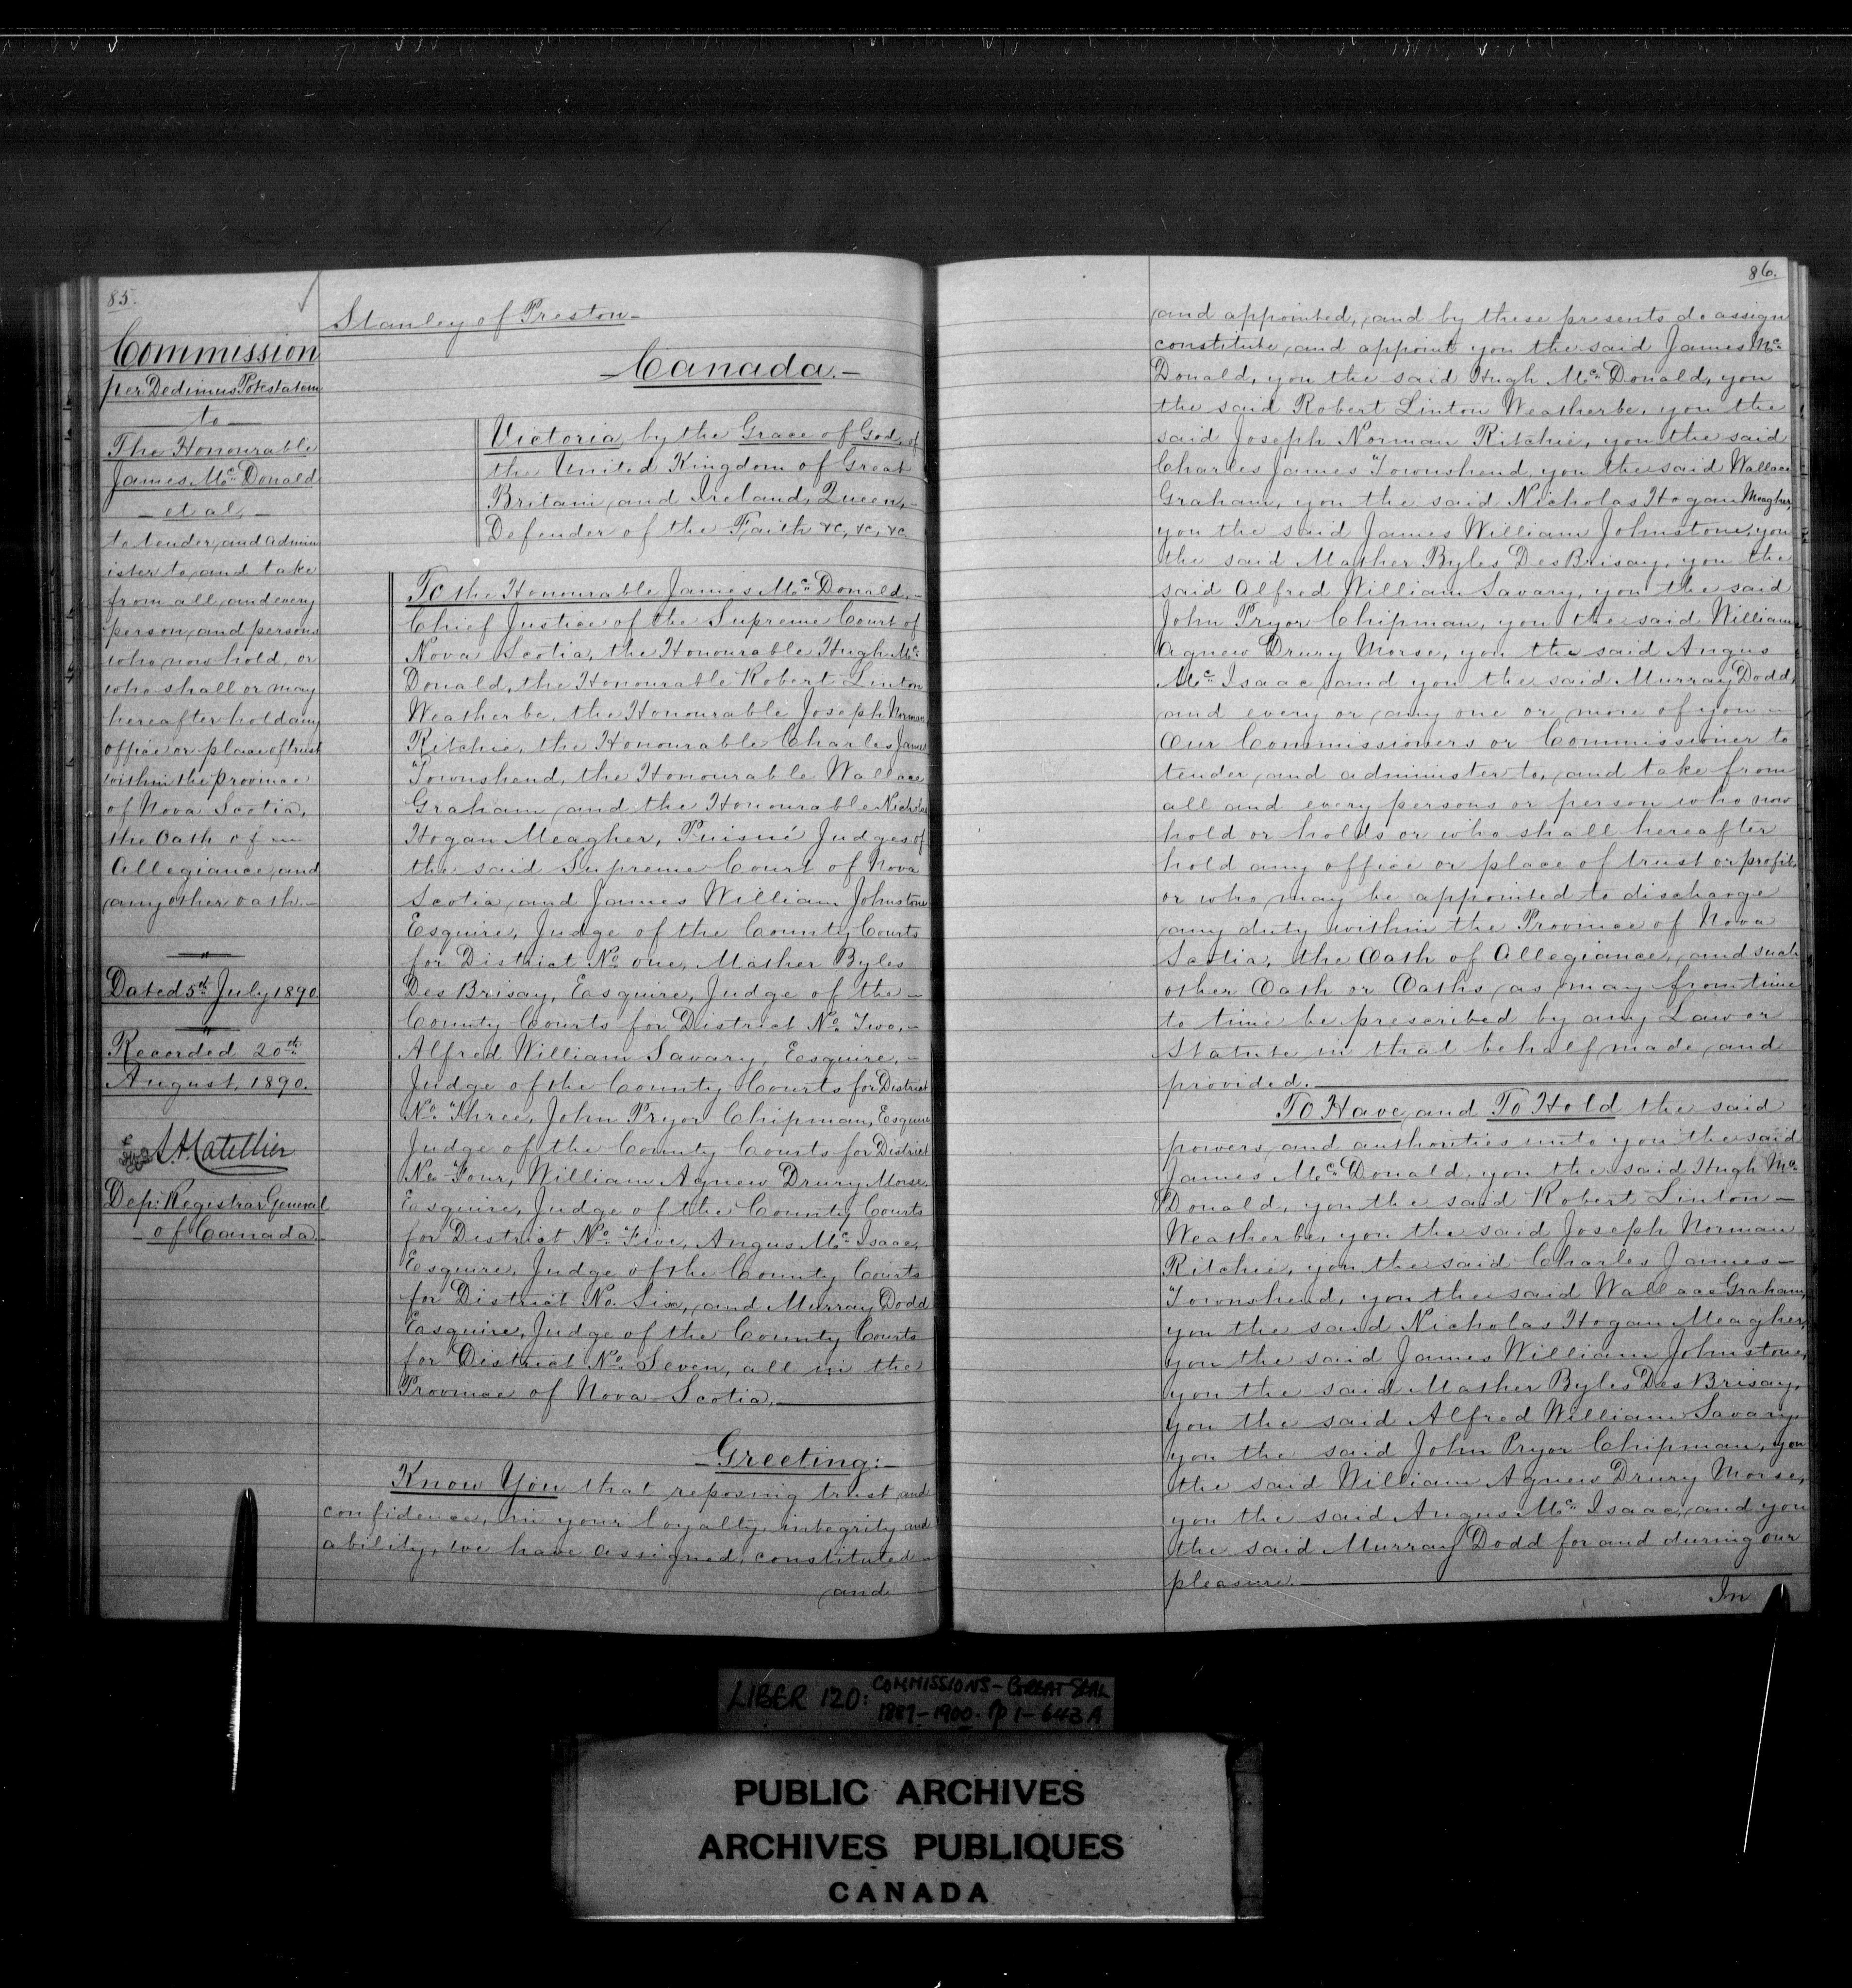 85.
Commission
per Dedimus Potestatem
to
The Honourable
James Mc. Donald
et al
to tender and admin
ister to and take
from all and every
person and persons
who now hold, or
who shall or may
hereafter hold any
office or place of trust
within the province
of Nova Scotia,
the Oath of
Allegiance, and
any other oath.
Dated 5th July 1890.
Recorded 20th
August, 1890.
Dep. Registrar General
of Canada
Stanley of Preston
Canada.
Victoria, by the Grace of God, of
the United Kingdom of Great
Britain and Ireland, Queen,
Defender of the Faith &c, &c, &c
To the Honourable James Mc. Donald,
Chief Justice of the Supreme Court of
Nova Scotia, the Honourable Hugh Mc.
Donald, the Honourable Robert Linton
Weatherbe, the Honourable Joseph Norman
Ritchie, the Honourable Charles James
Townshend, the Honourable Wallace
Graham, and the Honourable Nicholas
Hogan Meagher, Puisné Judges of
the said Supreme Court of Nova
Scotia, and James William Johnstone
Esquire, Judge of the County Courts
for District No. one, Mather Byles
Des Brisay, Esquire, Judge of the
County Courts for District No. Two,
Alfred William Savary, Esquire,
Judge of the County Courts for District
No. Three, John Pryor Chipman, Esquire
Judge of the County Courts for District
No. Four, William Agnew Drury Morse,
Esquire, Judge of the County Courts
for District No. Five, Angus Mc. Isaac,
Esquire, Judge of the County Courts
for District No. Six, and Murray Dodd
Esquire, Judge of the County Courts
for District No. Seven, all in the
Province of Nova Scotia.
Greeting:
Know You that reposing trust and
confidence, in your loyalty, integrity and
ability, we have assigned, constituted
and
86.
and appointed, and by these presents do assign
constitute and appoint you the said James Mc.
Donald, you the said Hugh Mc. Donald, you
the said Robert Linton Weatherbe, you the
said Joseph Norman Ritchie, you the said
Charles James Townshend, you the said Wallace
Graham, you the said Nicholas Hogan Meagher,
you the said James William Johnstone, you
the said Mather Byles DesBrisay, you the
said Alfred William Savary, you the said
John Pryor Chipman, you the said William
Agnew Drury Morse, you the said Angus
Mc. Isaac and you the said Murray Dodd,
and every or any one or more of you
Our Commissioners or Commissioner to
tender and administer to, and take from
all and every persons or person who now
hold or holds or who shall hereafter
hold any office or place of trust or profit,
or who may be appointed to discharge
any duty within the Province of Nova
Scotia, the Oath of Allegiance, and such
other Oath or Oaths, as may from time
to time be prescribed by any Law or
Statute in that behalf made and
provided.
To Have and To Hold the said
powers and authorities unto you the said
James Mc. Donald, you the said Hugh Mc.
Donald, you the said Robert Linton
Weatherbe, you the said Joseph Norman
Ritchie, you the said Charles James
Townshend, you the said Wallace Graham,
you the said Nicholas Hogan Meagher,
you the said James William Johnstone,
you the said Mather Byles Des Brisay,
you the said Alfred William Savary,
you the said John Pryor Chipman, you
the said William Agnew Drury Morse,
you the said Angus Mc. Isaac, and you
the said Murray Dodd for and during our
pleasure.
In
LIBER 120: COMMISSIONS - GREAT SEAL
1889-1900. pp 1-643A
PUBLIC ARCHIVES
ARCHIVES PUBLIQUES
CANADA